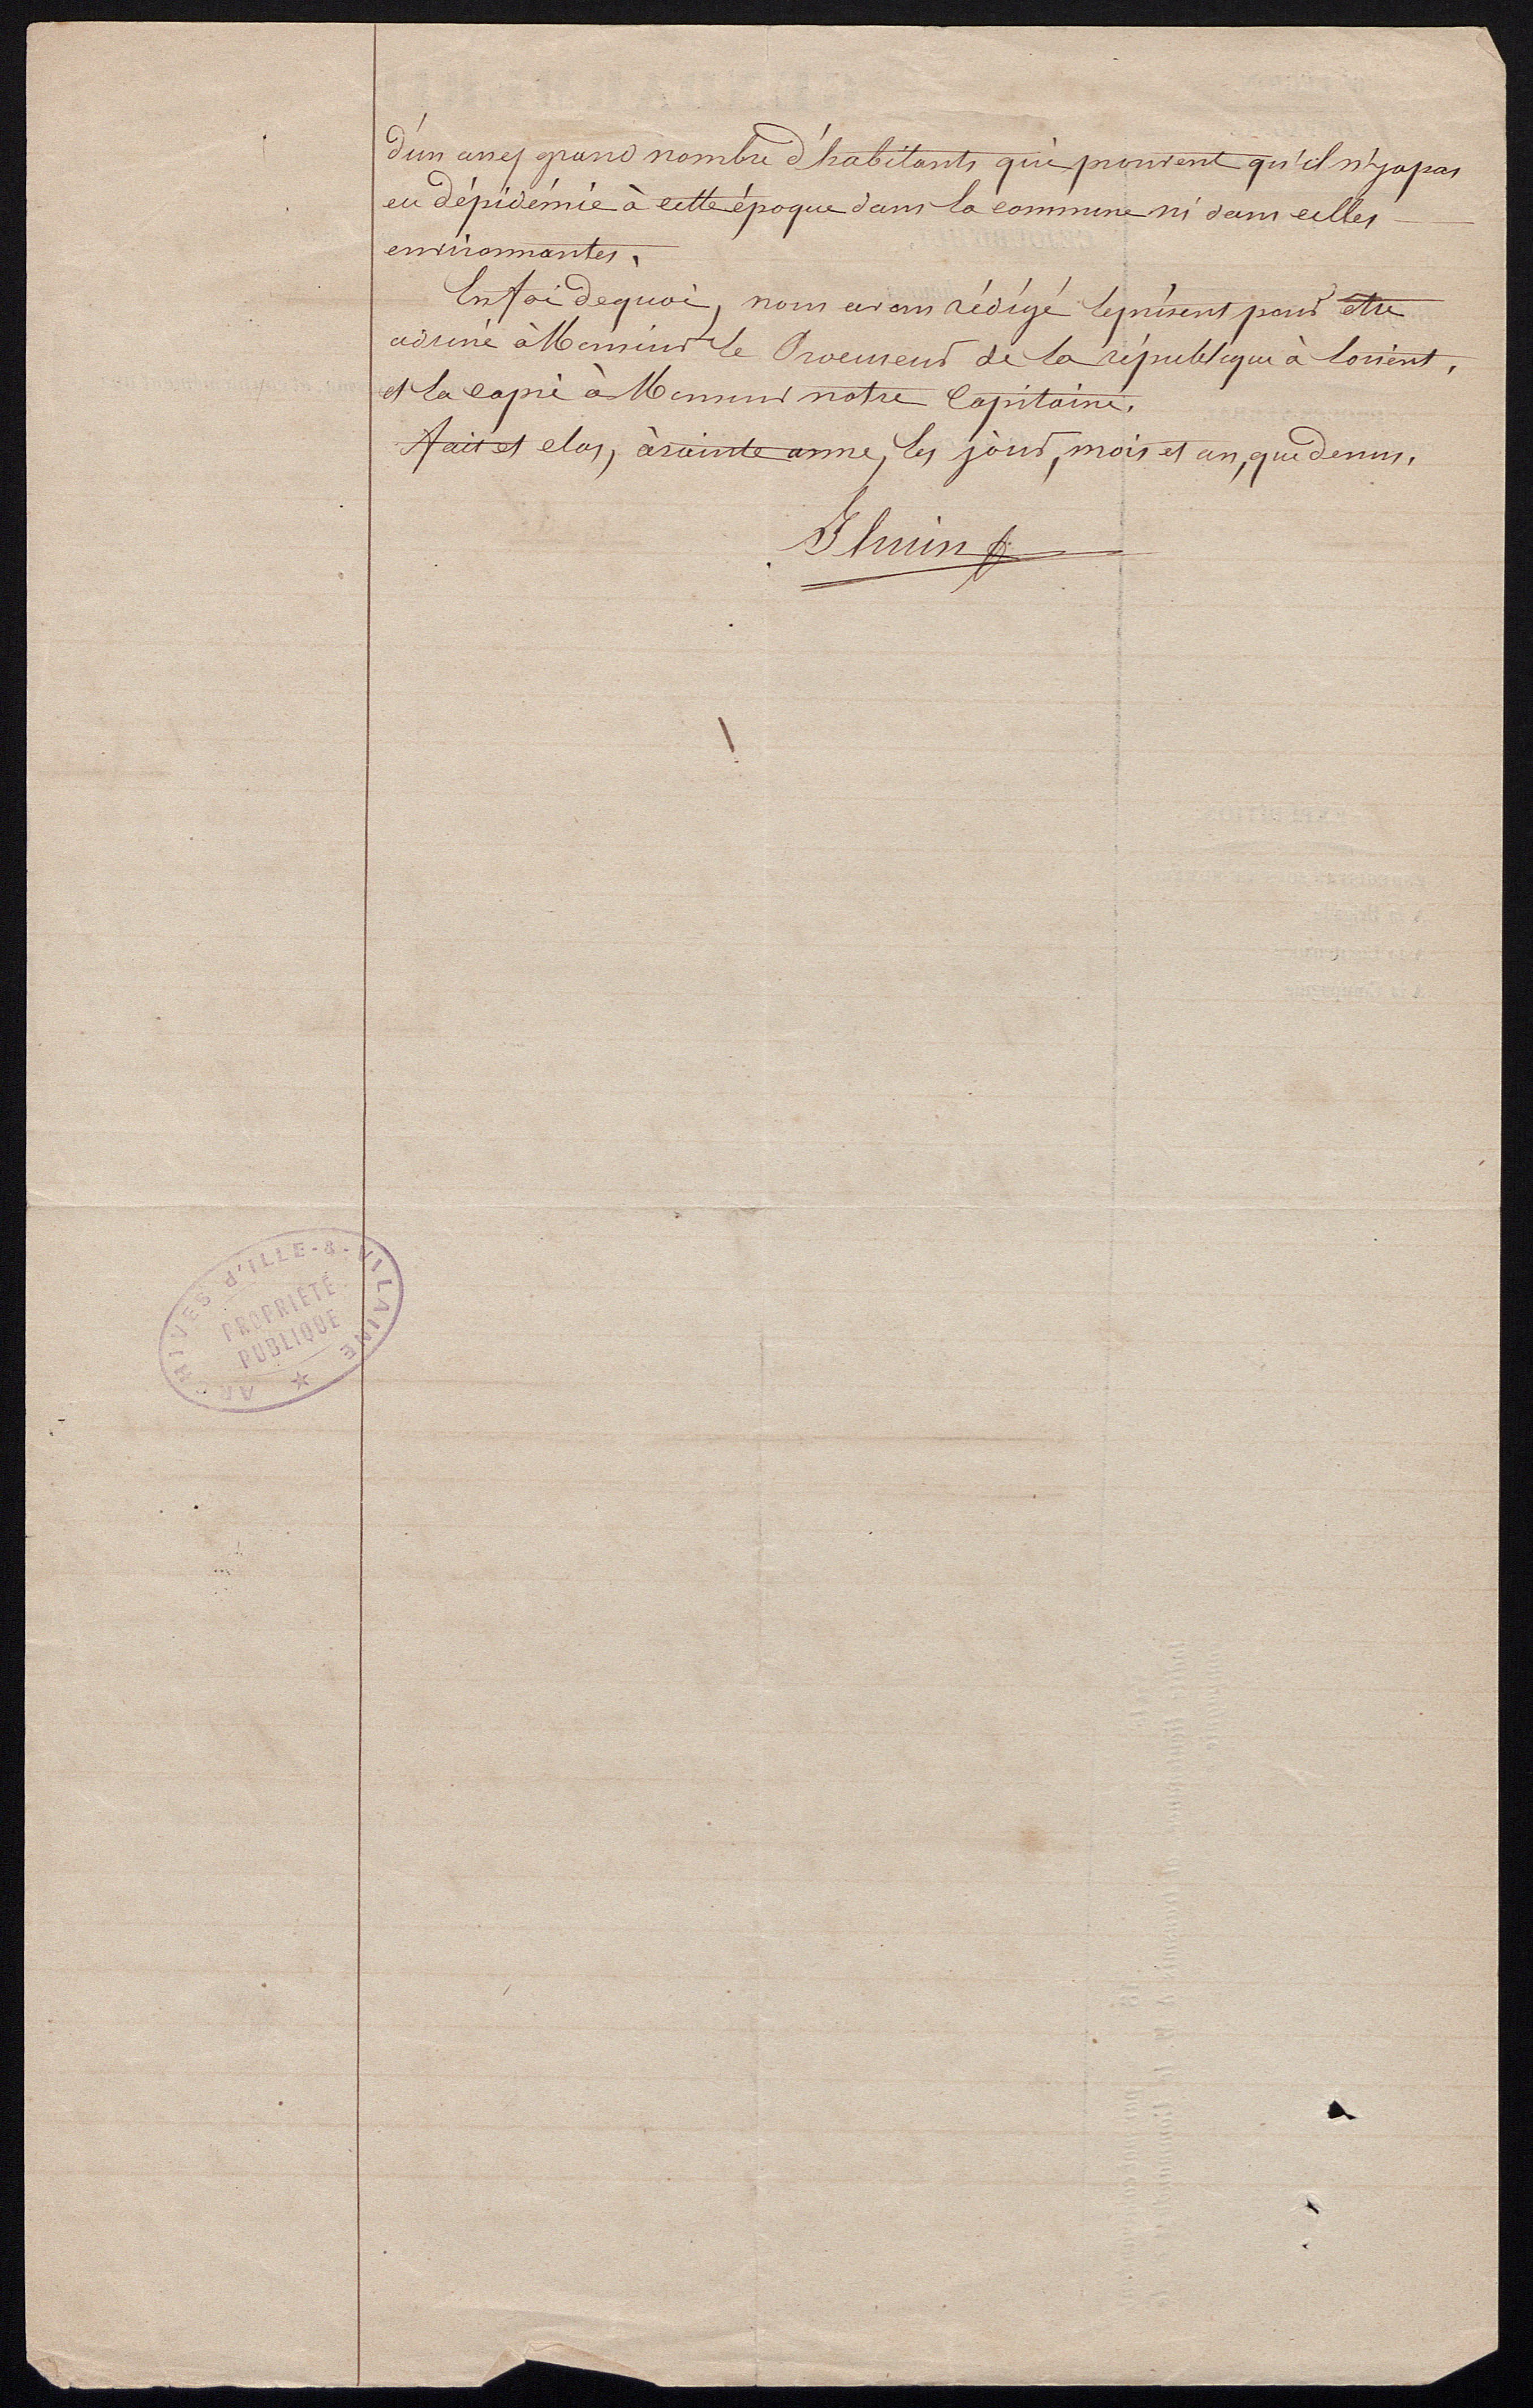 d'un assez grand nombre d'habitants qui prouvent qu'il n'y a pas
eu d'épidémie à cette époque dans la commune ni dans celles
environnantes.
En foi de quoi, nous avons rédigé le présent pour être
adressé à Monsieur le Procureur de la république à Lorient,
et la copie à Monsieur notre Capitaine.
Fait et clos, à sainte anne, les jour, mois et an, que dessus.
ARCHIVES D'ILLE-&-VILAINE
PROPRIÉTÉ
PUBLIQUE